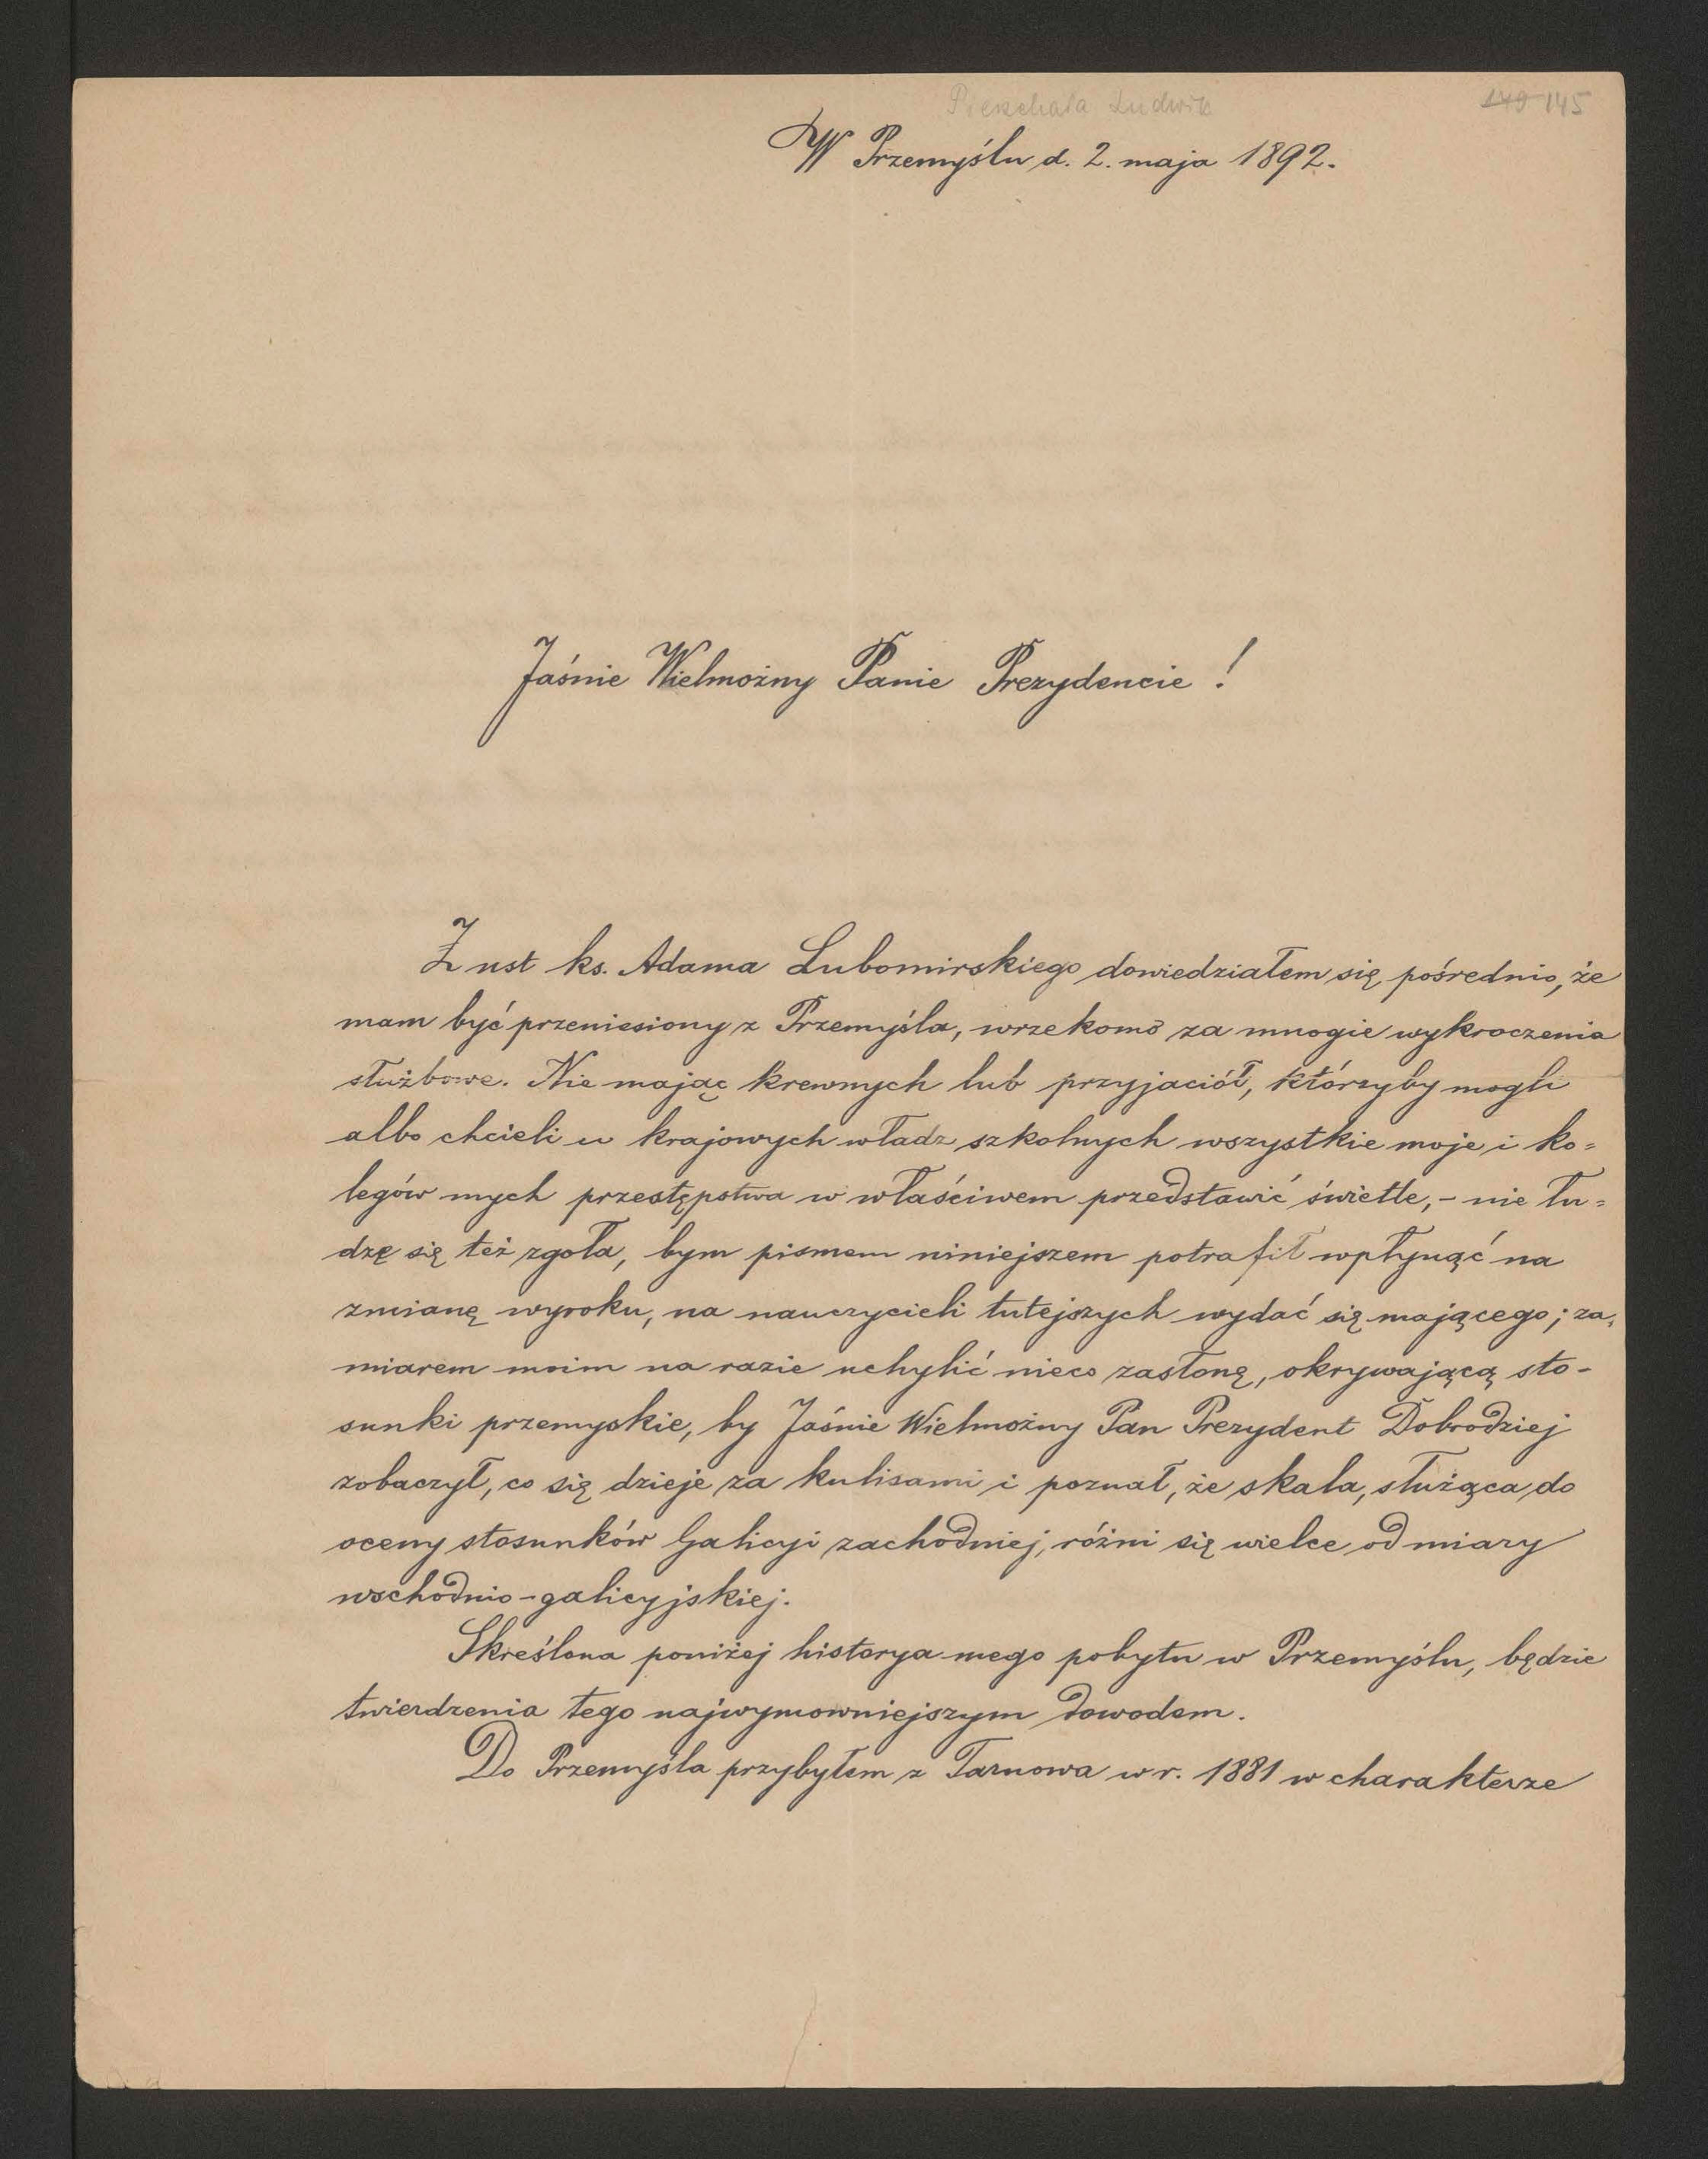 Pieschała Ludwik
149 145
W Przemyślu d. 2. maja 1892.
Jaśnie Wielmożny Panie Prezydencie!
Z ust ks. Adama Lubomirskiego dowiedziałem się pośrednio, że
mam być przeniesiony z Przemyśla, wrzekomo za mnogie wykroczenia
służbowe. Nie mając krewnych lub przyjaciół, którzyby mogli
albo chcieli u krajowych władz szkolnych wszystkie moje i ko=
legów mych przestępstwa w właściwem przedstawić świetle, - nie łu=
dzę się też zgoła, bym pismem niniejszem potrafił wpłynąć na
zmianę wyroku, na nauczycieli tutejszych wydać się mającego; za=
miarem moim na razie uchylić nieco zasłonę, okrywającą sto-
sunki przemyskie, by Jaśnie Wielmożny Pan Prezydent Dobrodziej
zobaczył, co się dzieje za kulisami i poznał, że skala, służąca do
oceny stosunków Galicyi zachodniej, różni się wielce od miary
wschodnio-galicyjskiej.
Skreślona poniżej historya mego pobytu w Przemyślu, będzie
twierdzenia tego najwymowniejszym dowodem.
Do Przemyśla przybyłem z Tarnowa w r. 1881 w charakterze